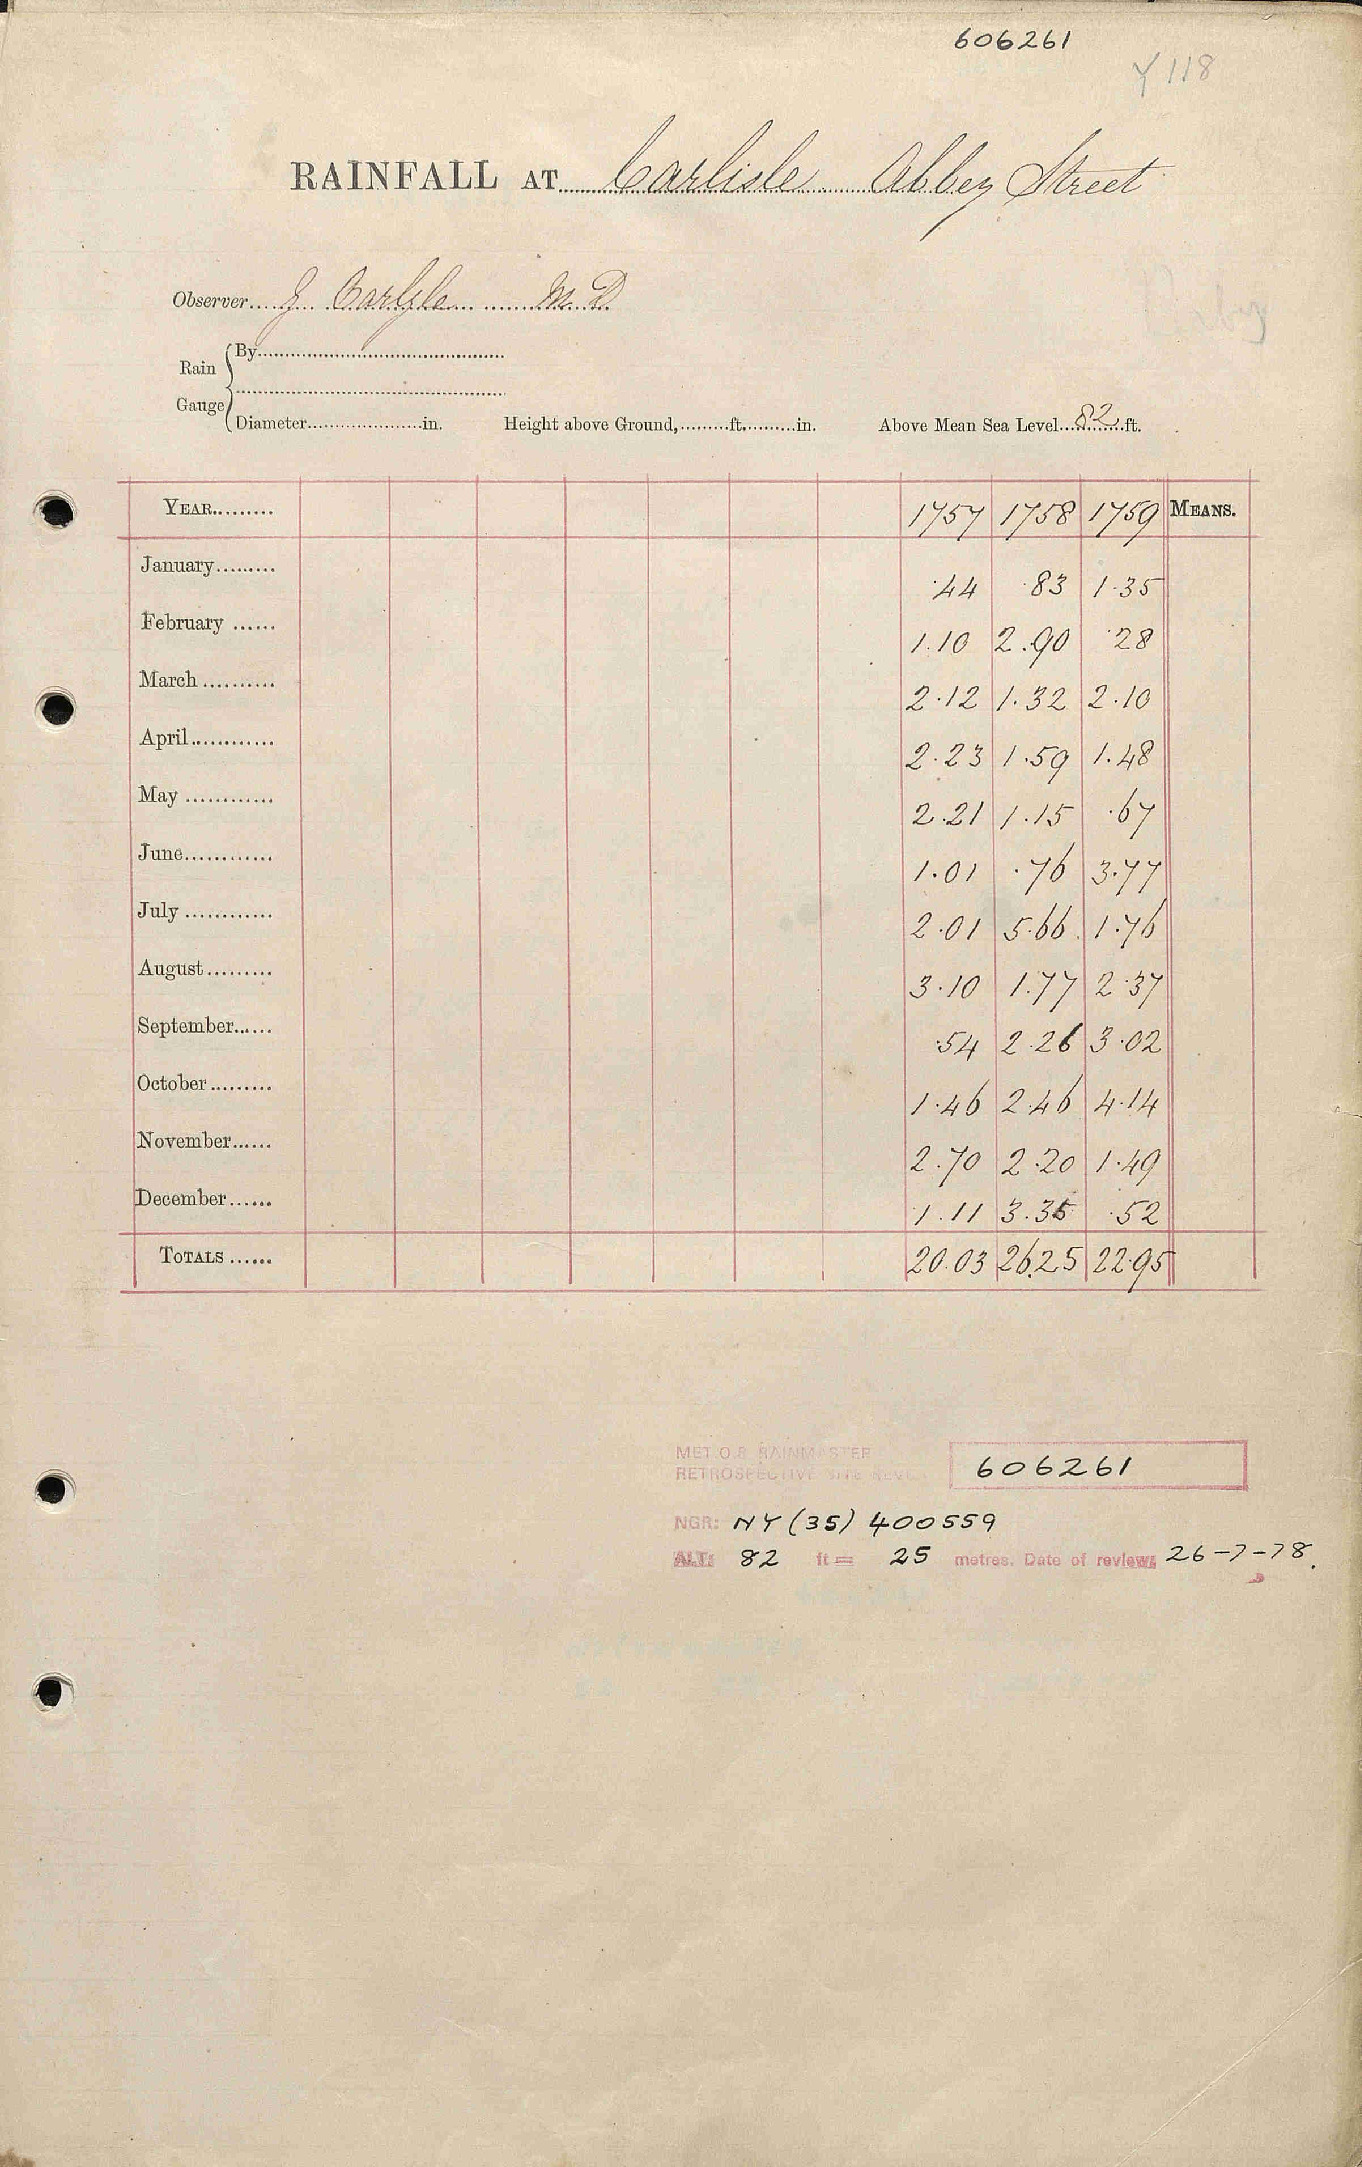 606261
Y 118
RAINFALL AT Carlisle Abbey Street
Observer J Carlyle M D
Rain Gauge
By
Diameter in. Height above Ground, ft. in. Above Mean Sea Level 82 ft.
YEAR 1757 1758 1759 MEANS.
January .44 .83 1.35
February 1.10 2.90 .28
March 2.12 1.32 2.10
April 2.23 1.59 1.48
May 2.21 1.15 .67
June 1.01 .76 3.77
July 2.01 5.66 1.76
August 3.10 1.77 2.37
September .54 2.26 3.02
October 1.46 2.46 4.14
November 2.70 2.20 1.49
December 1.11 3.35 .52
TOTALS 20.03 26.25 22.95
MET.O.8 RAINMASTER
RETROSPECTIVE SITE 606261
NGR: NY (35) 400559
ALT: 82 ft = 25 metres. Date of review: 26-7-78.